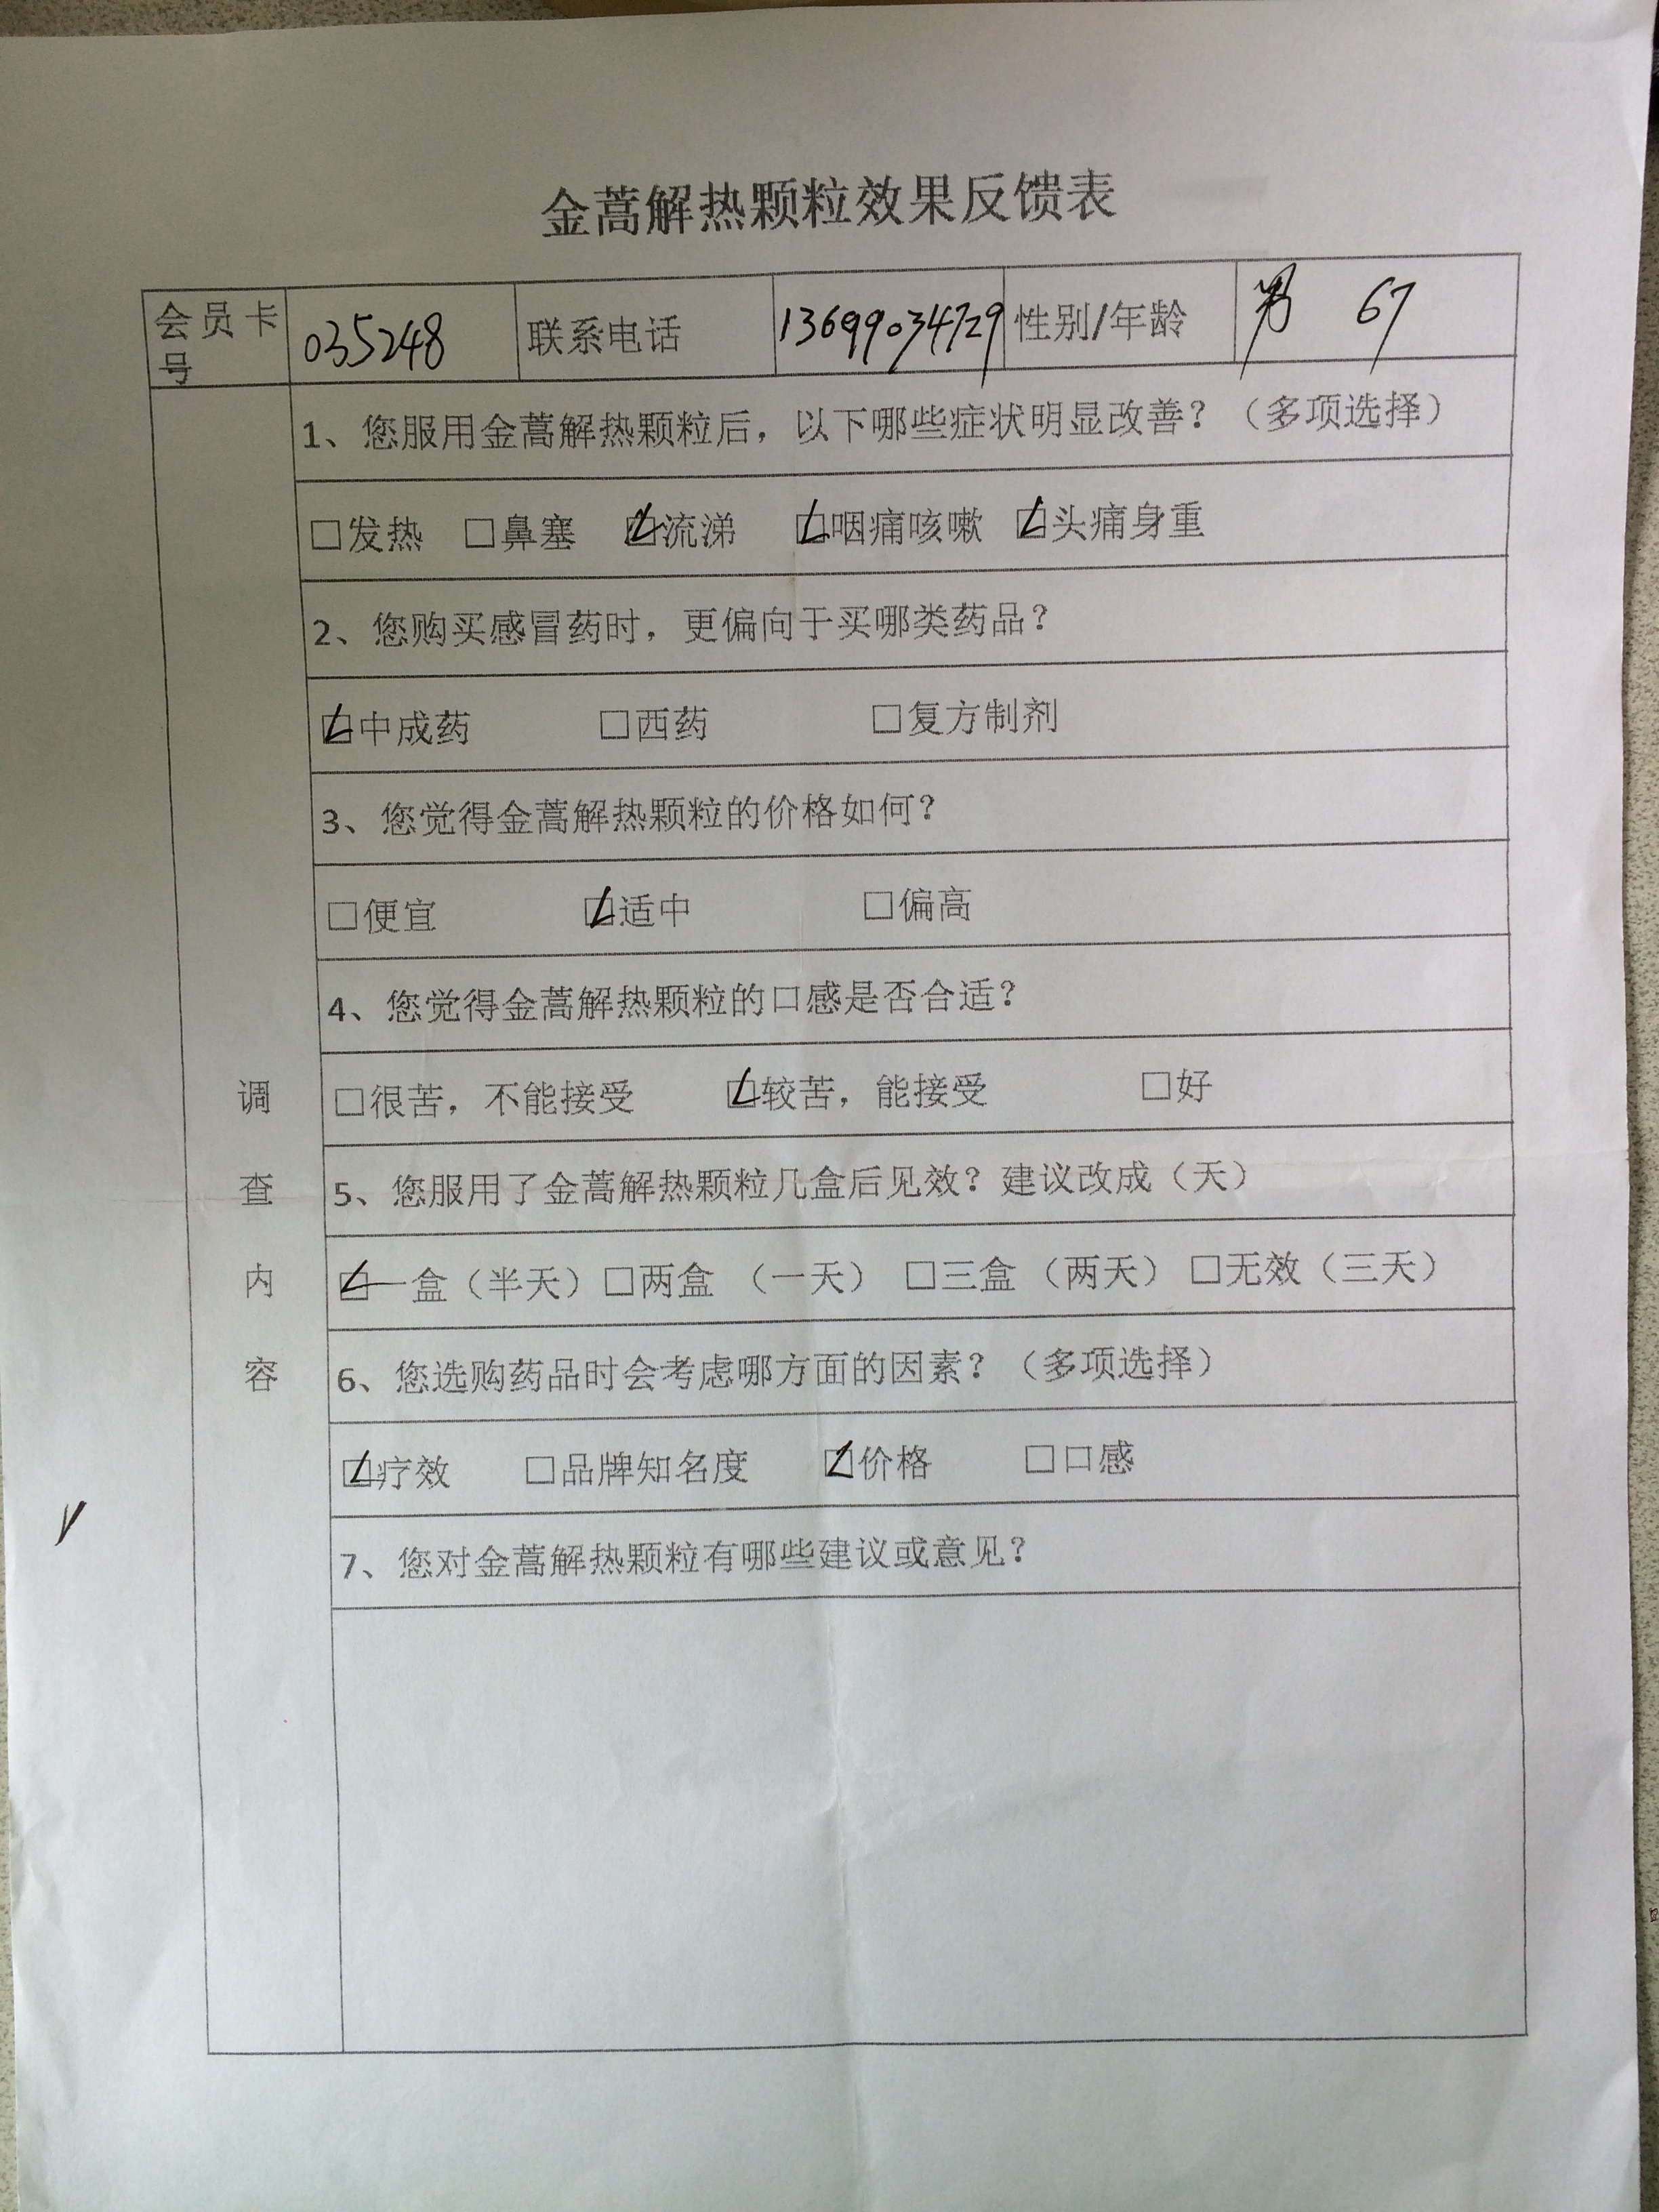 金蒿解热颗粒效果反馈表
会员卡号 035248 联系电话 13699034729 性别/年龄 男 67
1、您服用金蒿解热颗粒后，以下哪些症状明显改善？（多项选择）
□发热 □鼻塞 ☑流涕 ☑咽痛咳嗽 ☑头痛身重
2、您购买感冒药时，更偏向于买哪类药品？
☑中成药 □西药 □复方制剂
3、您觉得金蒿解热颗粒的价格如何？
□便宜 ☑适中 □偏高
4、您觉得金蒿解热颗粒的口感是否合适？
□很苦，不能接受 ☑较苦，能接受 □好
5、您服用了金蒿解热颗粒几盒后见效？建议改成（天）
☑一盒（半天）□两盒 （一天） □三盒 （两天） □无效（三天）
6、您选购药品时会考虑哪方面的因素？（多项选择）
☑疗效 □品牌知名度 ☑价格 □口感
7、您对金蒿解热颗粒有哪些建议或意见？
调
查
内
容